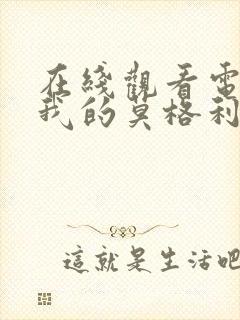 在綫觀看電
我的莫格利
這就是生活吧